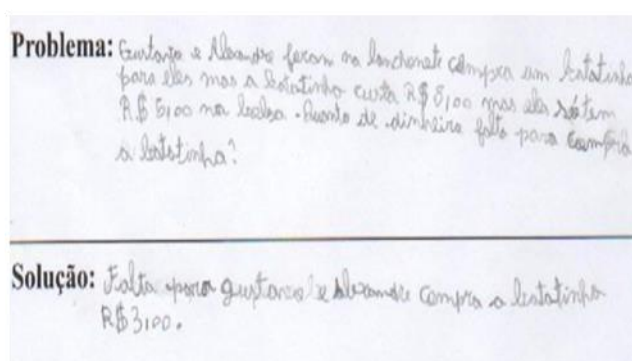 Problema: Gustavo e Alexandre foram na lanchonete compra um batatinha
para eles mas a batatinha custa R$ 8,00 mas eles só tem
R.$ 5,00 no bolso. Quanto de dinheiro falta para compra
a batatinha?
Solução: Falta para gustavo e Alexandre compra a batatinha
R$3,00.